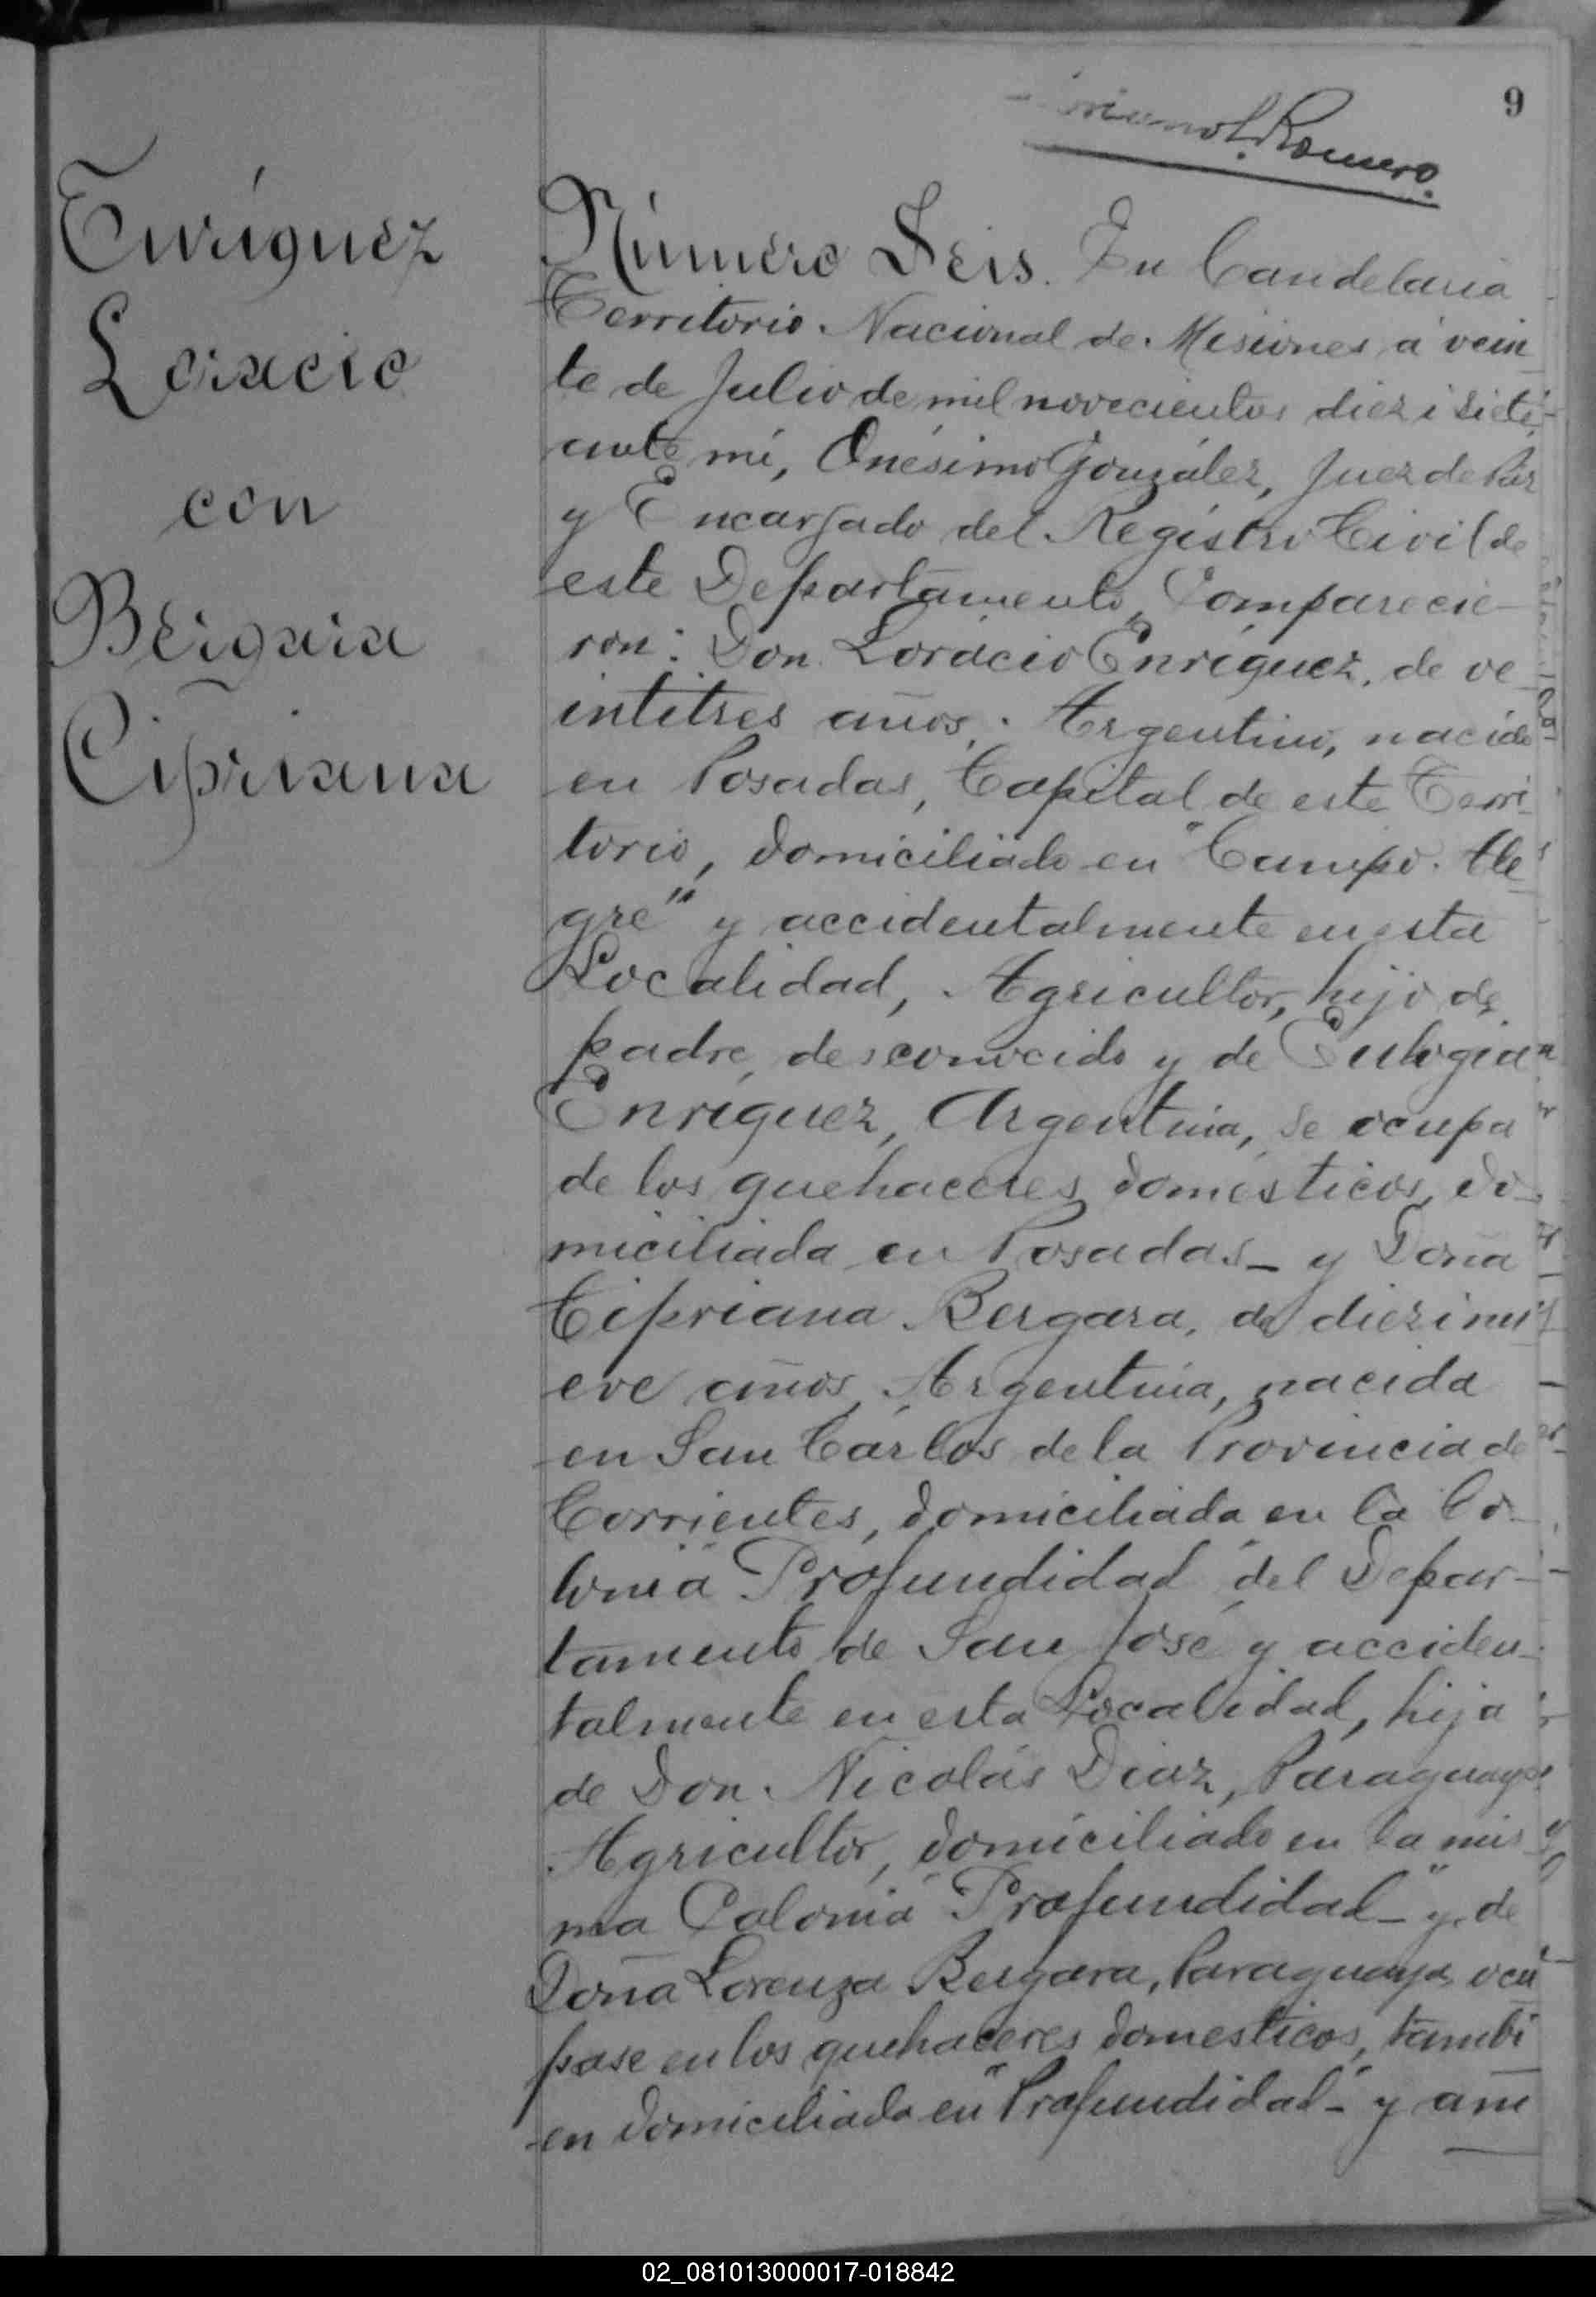 9
Romero.
Enriguez
Loracio
con
Bergara
Cipriana
Número Seis. En Candelaria
Territorio Nacional de Misiones á vein
te de Julio de mil novecientos diez i siete,
ante mí, Onésimo González, Juez de Paz
y Encargado del Registro Civil de
este Departamento, Comparecie-
ron: Don Loracio Enriguez, de ve
intitres años, Argentino, nacido
en Posadas, Capital de este Terri
torio, domiciliado en "Campo Ale
gre" y accidentalmente en esta
Localidad, Agricultor, hijo de
padre desconocido y de Eulogia
Enriguez, Argentina, se ocupa
de los quehaceres domésticos, do-
miciliada en Posadas_ y Doña
Cipriana Bergara, de diez i nu
eve años, Argentina, nacida
en San Cárlos de la Provincia de
Corrientes, domiciliada en la Co-
lonia "Profundidad" del Depar-
tamento de San José y acciden-
talmente en esta Localidad, hija
de Don Nicolás Diaz, Paraguayo
Agricultor, domiciliado en la mis
ma Colonia "Profundidad_" y de
Doña Lorenza Bergara, Paraguaya, ocú
pase en los quehaceres domesticos, tambi
en domiciliada en "Profundidad_" y am
02_081013000017-018842